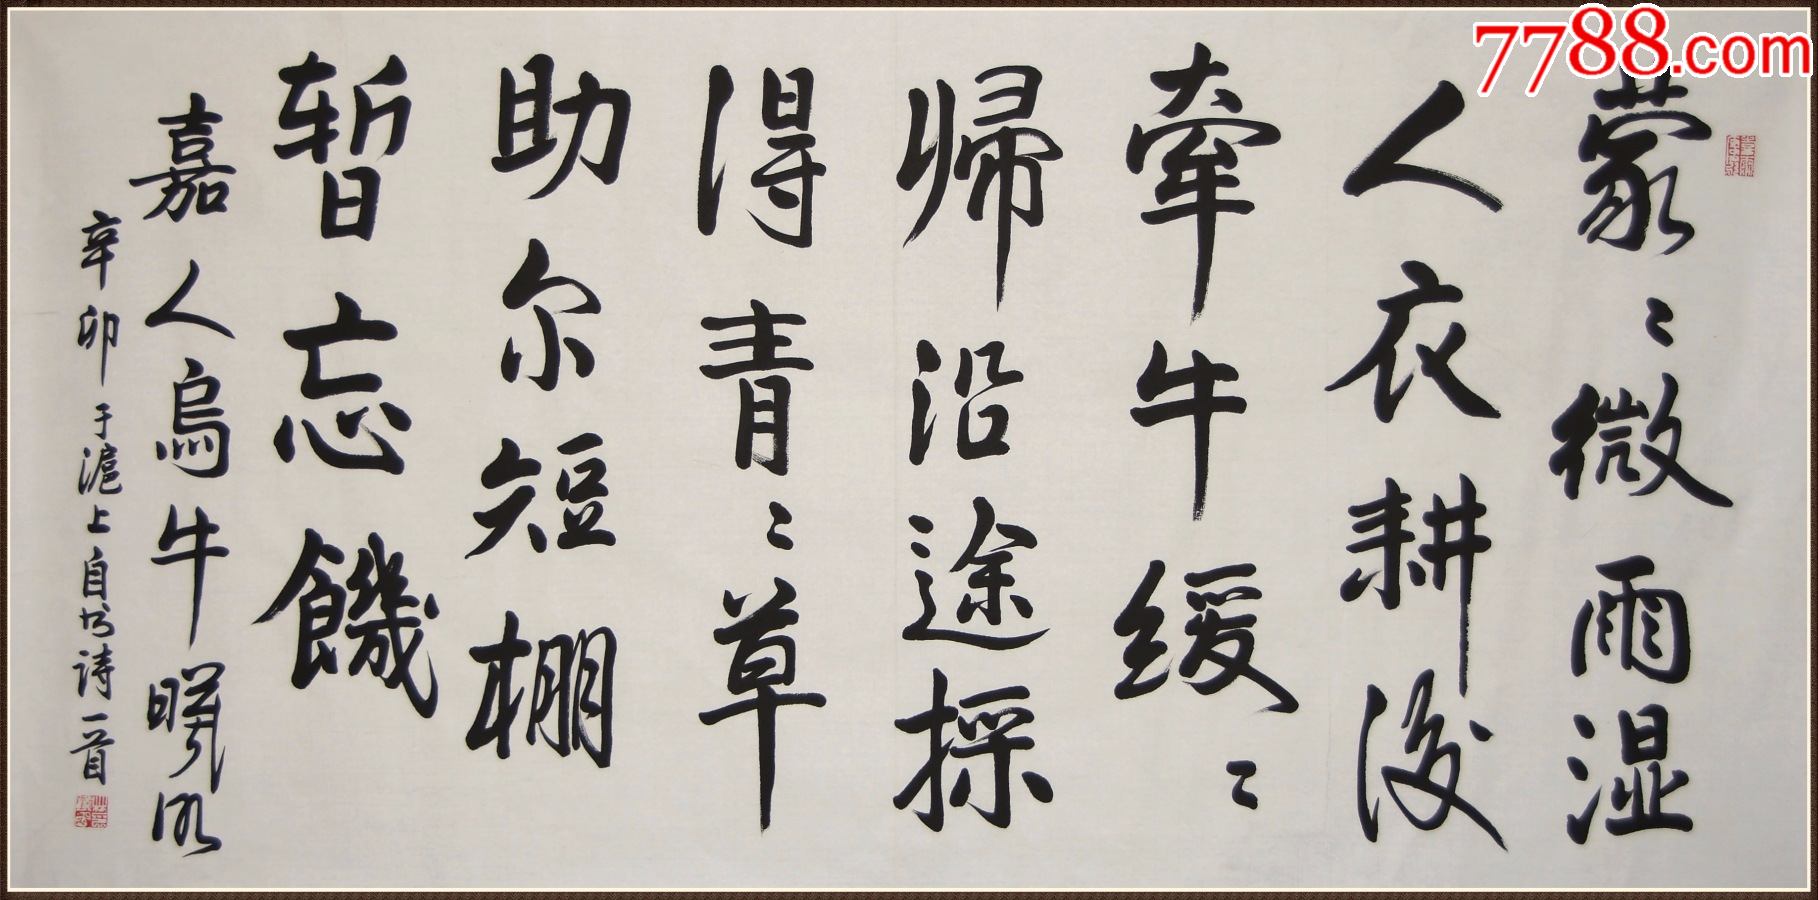 7788.com
蒙〻微雨湿
人衣耕後
牵牛缓〻
帰沿途採
得青〻草
助尔短棚
暂忘饑
嘉人烏牛曦
辛卯于滬上自书诗一首